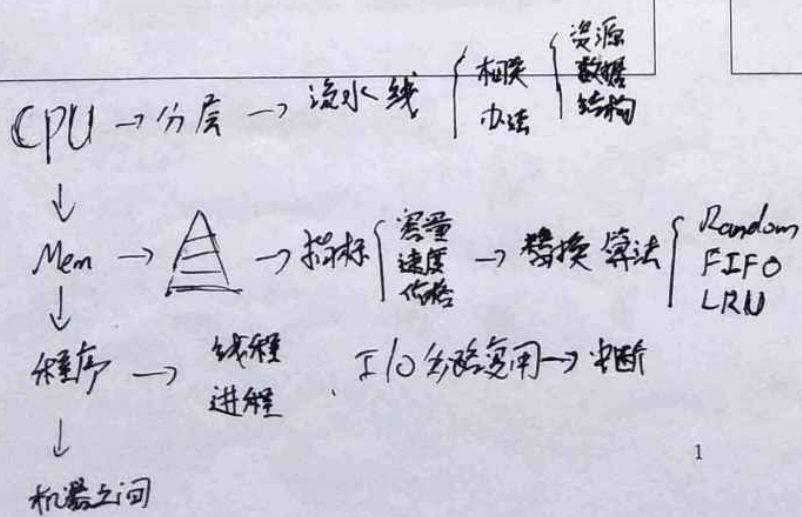 CPU → 分层 → 流水线 { 相关 办法 { 资源 数据 结构
↓
Mem → → 指标 { 容量 速度 价格 → 替换算法 { Random FIFO LRU
↓
程序 → 线程 进程 I/O 多路复用 → 中断
↓
机器之间
1